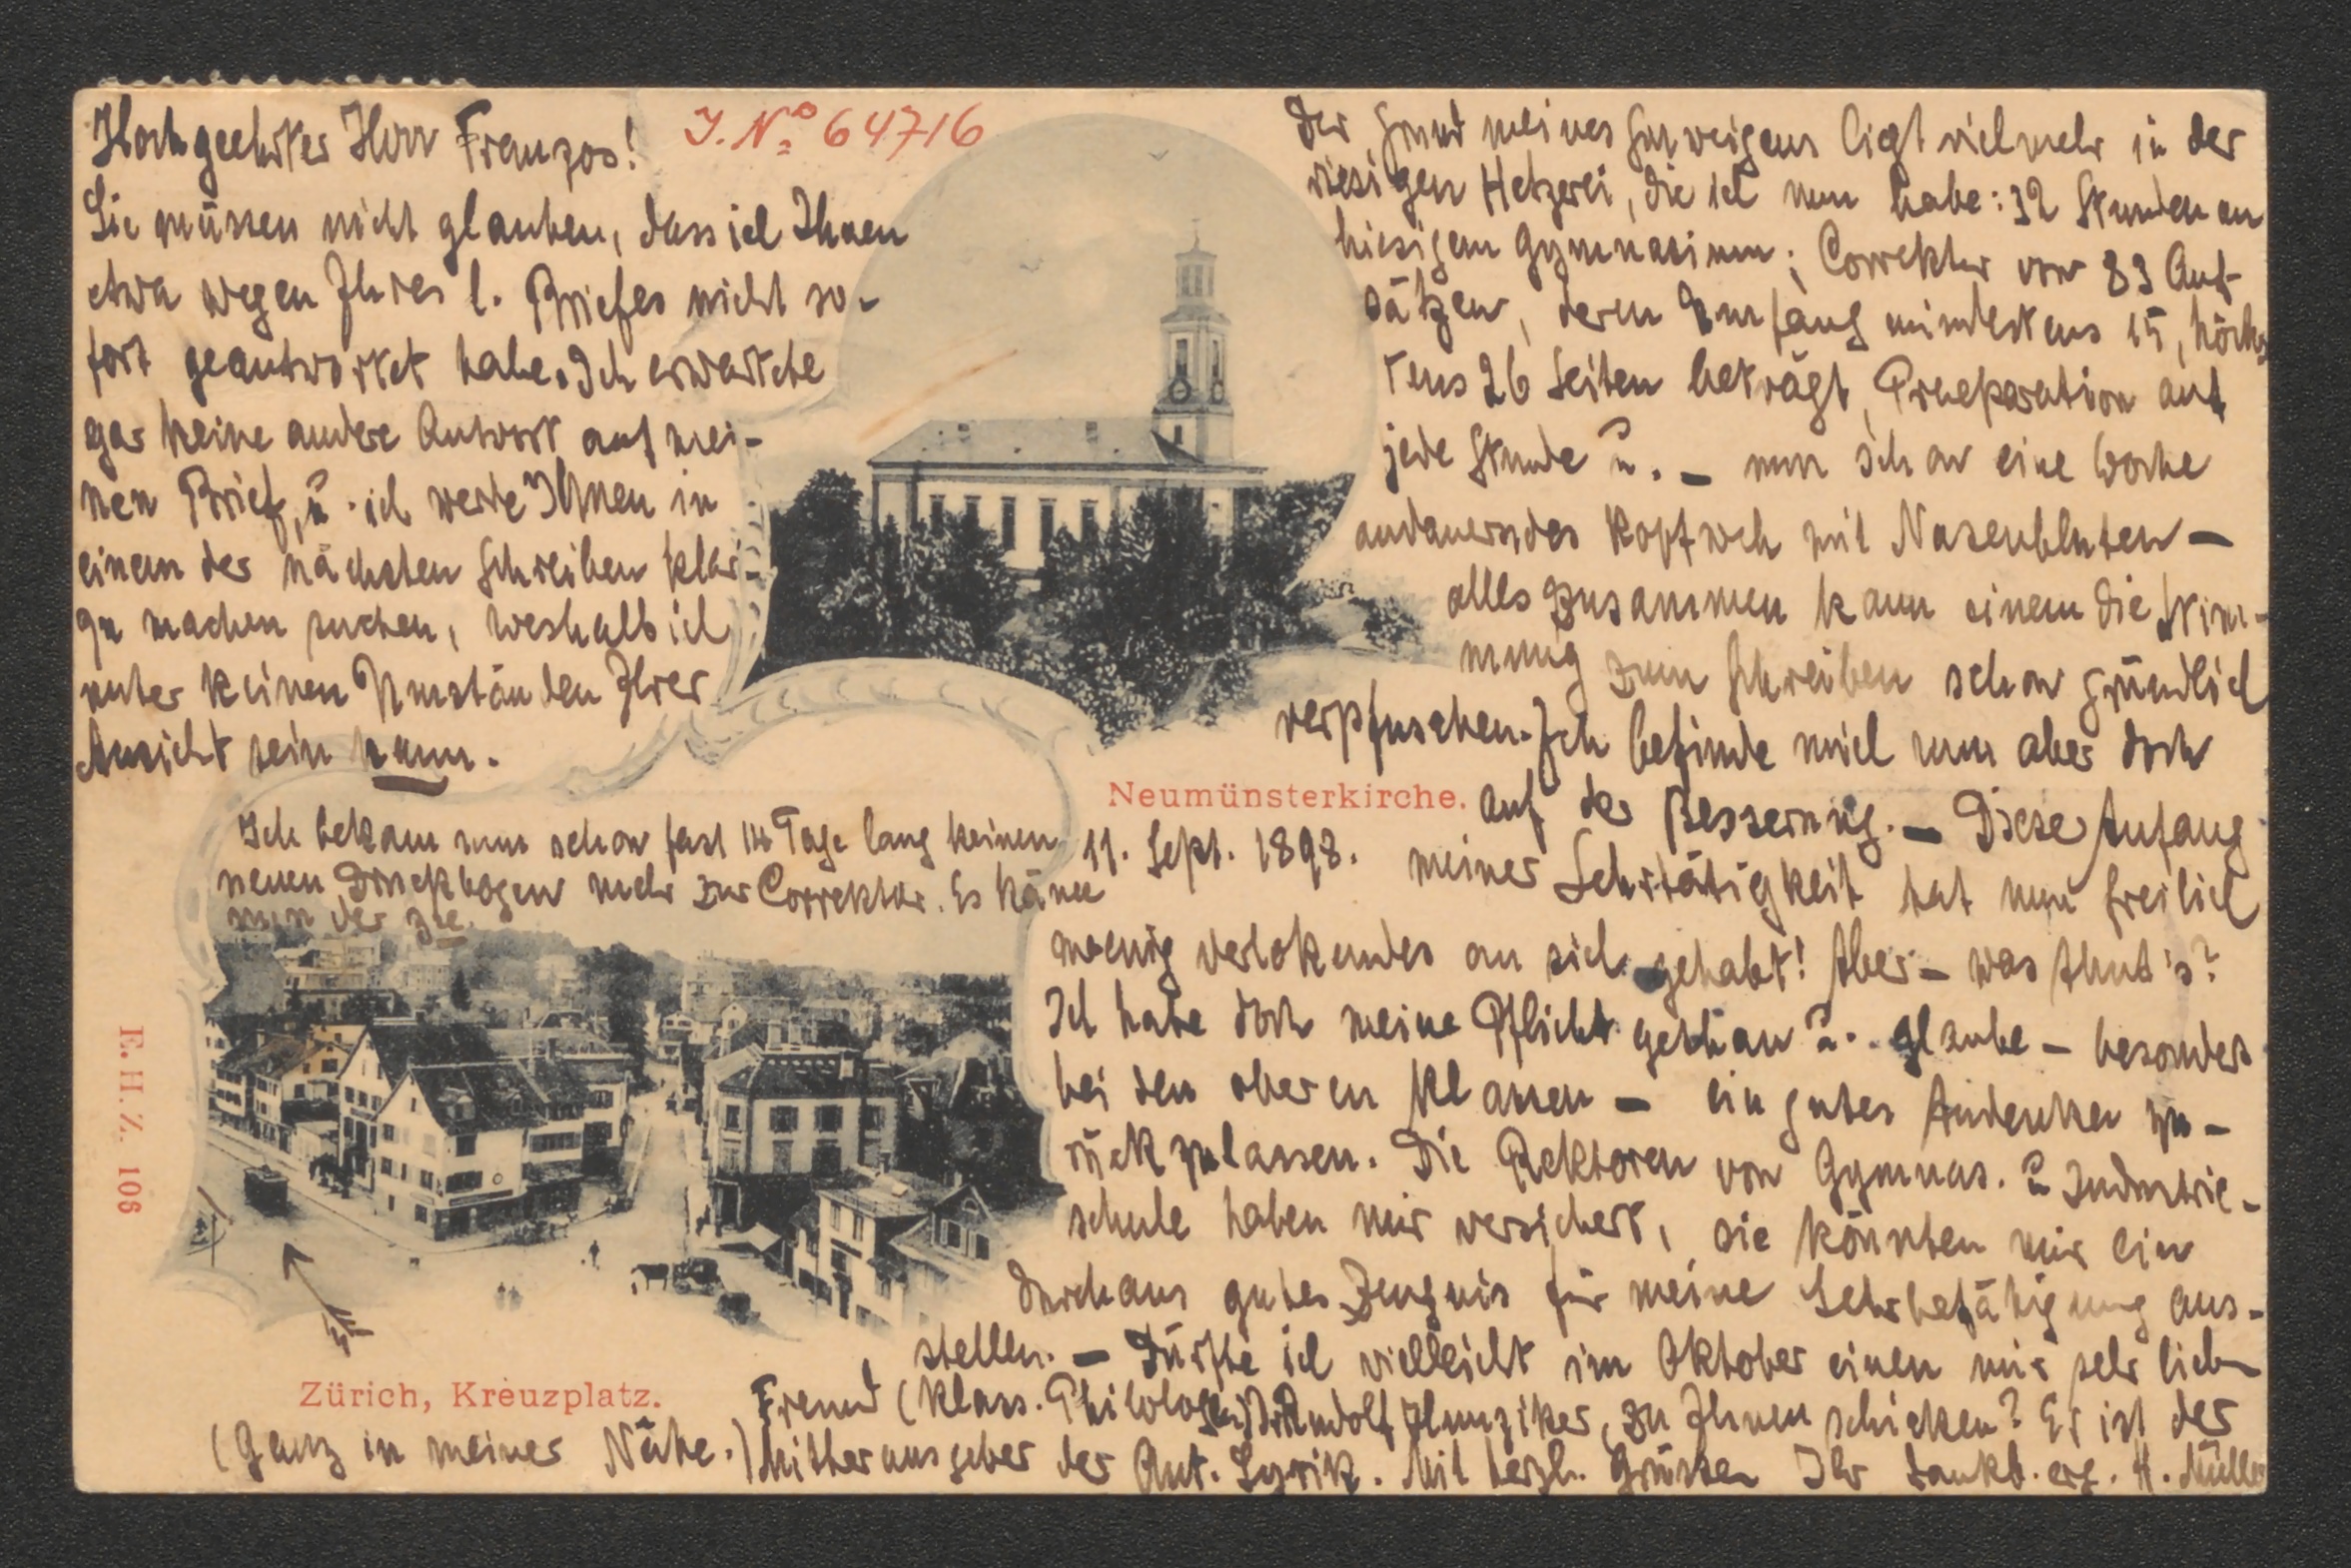 Hochgeehrter Herr Franzos!
J. No 64716
Sie müssen nicht glauben, dass ich Ihnen
etwa wegen Ihres l. Briefes nicht so-
fort geantwortet habe. Ich erwartete
gar keine andere Antwort auf mei-
nen Brief, u. ich werde Ihnen in
einem der nächsten Schreiben klar
zu machen suchen, weshalb ich
unter keinen Umständen Ihrer
Ansicht sein kann.
Der Grund meines Schweigens ligt vielmehr in der
riesigen Hetzerei, die ich nun habe: 32 Stunden am
hiesigem Gymnasium; Correktur von 83 Auf-
sätzen, deren Umfang mindestens 15, höchs
tens 26 Seiten beträgt, Praeparation auf
jede Stunde u. – nun schon eine Woche
andauerndes Kopfweh mit Nasenbluten –
alles zusammen kann einem die Stim-
mung zum Schreiben schon gründlich
verpfuschen. Ich befinde mich nun aber doch
auf der Besserung. – Dieser Anfang
meiner Lehrtätigkeit hat nun freilich
wenig verlokendes an sich gehabt! Aber – was thut's?
Ich habe doch meine Pflicht gethan u. glaube – besonders
bei den oberen Klassen – ein gutes Andenken zu-
rückzulassen. Die Rektoren von Gymnas. u Industrie-
schule haben mir versichert, sie könnten mir ein
durchaus gutes Zeugnis für meine Lehrbefätigung aus-
stellen. – Dürfte ich vielleicht im Oktober einen mir sehr lieben
Freund (klass. Philologen) Dr Rudolf Hunziker, zu Ihnen schicken? Er ist der
Mitherausgeber der Ant. Lyrik. Mit herzl. Grüssen Ihr dankb. erg. H. Müller
Neumünsterkirche.
11. Sept. 1898.
Ich bekam nun schon fast 14 Tage lang keinen
neuen Druckbogen mehr zur Correktur. Es käme
nun der 3te.
E. H. Z. 106
Zürich, Kreuzplatz.
(Ganz in meiner Nähe.)